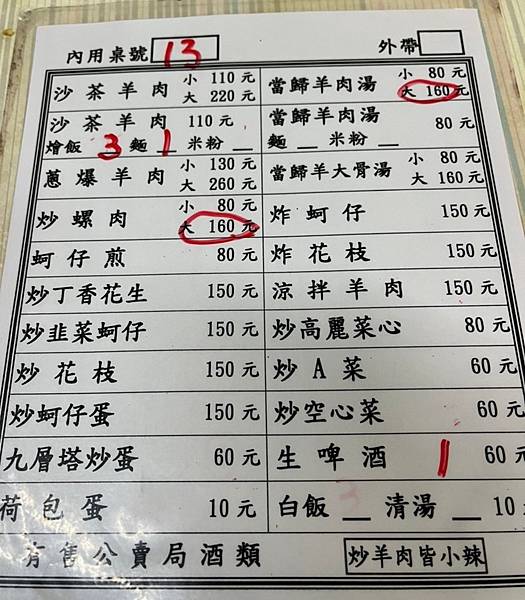 內用桌號 13 外帶
沙茶羊肉 小 110 元 大 220 元
當歸羊肉湯 小 80 元 大 160 元
沙茶羊肉 110 元 燴飯 3 麵 1 米粉
當歸羊肉湯 麵 米粉 80 元
蔥爆羊肉 小 130 元 大 260 元
當歸羊大骨湯 小 80 元 大 160 元
炒螺肉 小 80 元 大 160 元
炸蚵仔 150 元
蚵仔煎 80 元
炸花枝 150 元
炒丁香花生 150 元
涼拌羊肉 150 元
炒韭菜蚵仔 150 元
炒高麗菜心 80 元
炒花枝 150 元
炒A菜 60 元
炒蚵仔蛋 150 元
炒空心菜 60 元
九層塔炒蛋 60 元
生啤酒 1 60 元
荷包蛋 10 元
白飯 清湯 10
有售公賣局酒類
炒羊肉皆小辣